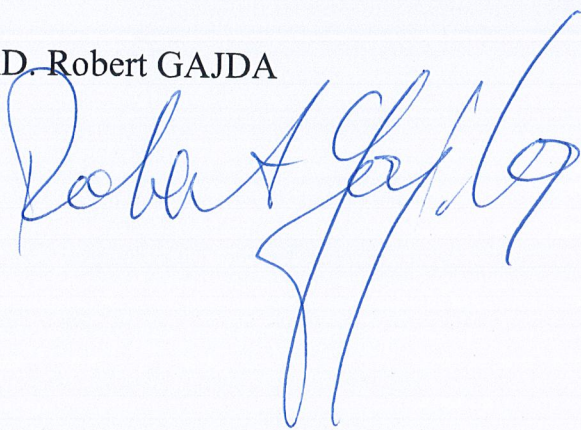 D. Robert GAJDA
Robert Gajda